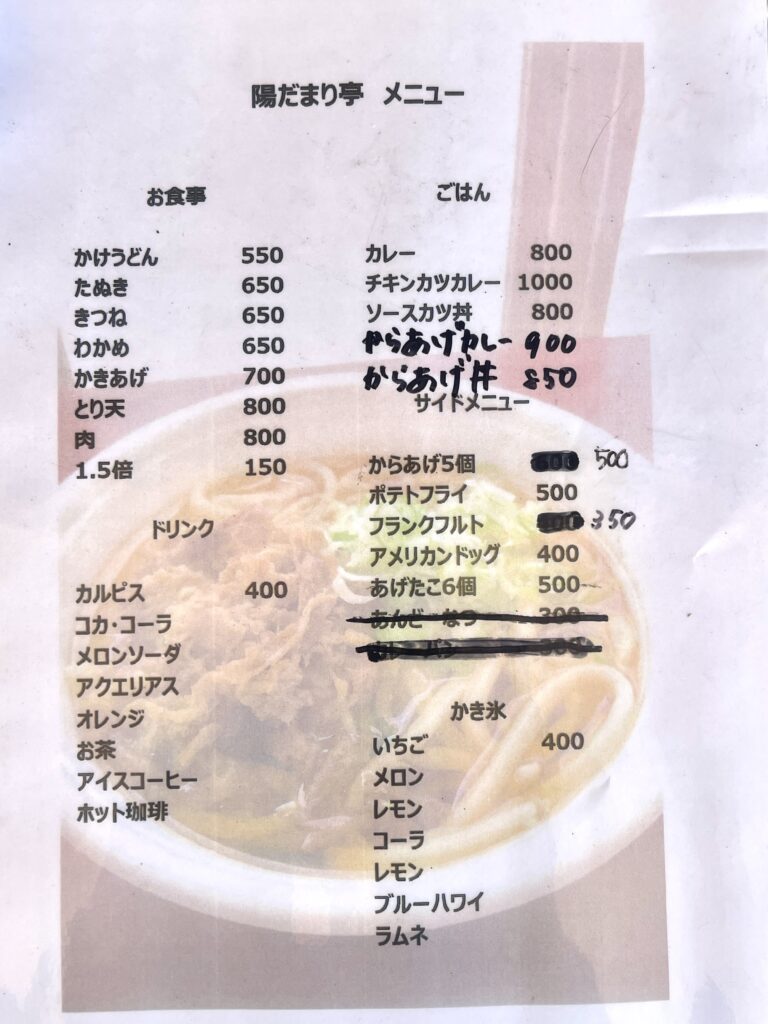 陽だまり亭 メニュー
お食事
かけうどん 550
たぬき 650
きつね 650
わかめ 650
かきあげ 700
とり天 800
肉 800
1.5倍 150
ドリンク
カルピス 400
コカ・コーラ
メロンソーダ
アクエリアス
オレンジ
お茶
アイスコーヒー
ホット珈琲
ごはん
カレー 800
チキンカツカレー 1000
ソースカツ丼 800
からあげカレー 900
からあげ丼 850
サイドメニュー
からあげ5個 500
ポテトフライ 500
フランクフルト 350
アメリカンドッグ 400
あげたこ6個 500
あんどーなつ 300
かき氷
いちご 400
メロン
レモン
コーラ
レモン
ブルーハワイ
ラムネ